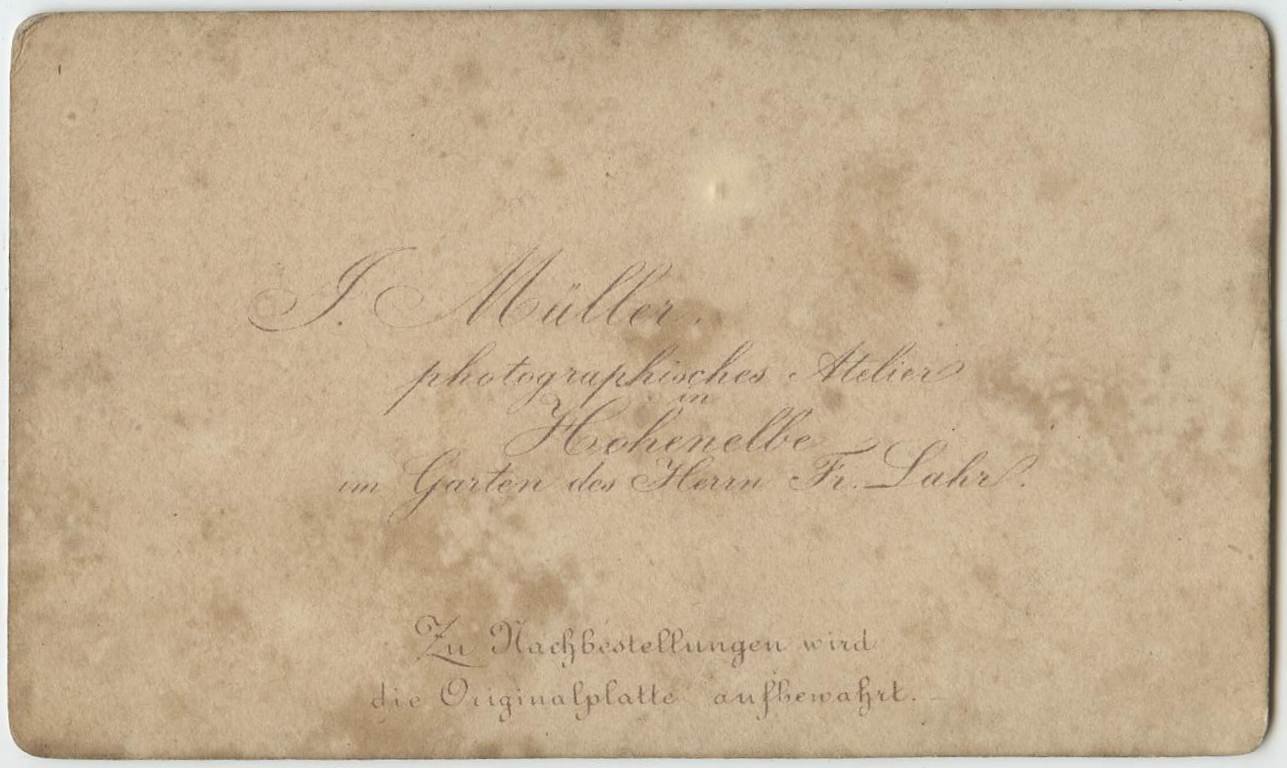 J. Müller.
photographisches Atelier
in
Hohenelbe
im Garten des Herrn Fr. Lahr.
Zu Nachbestellungen wird
die Originalplatte aufbewahrt.